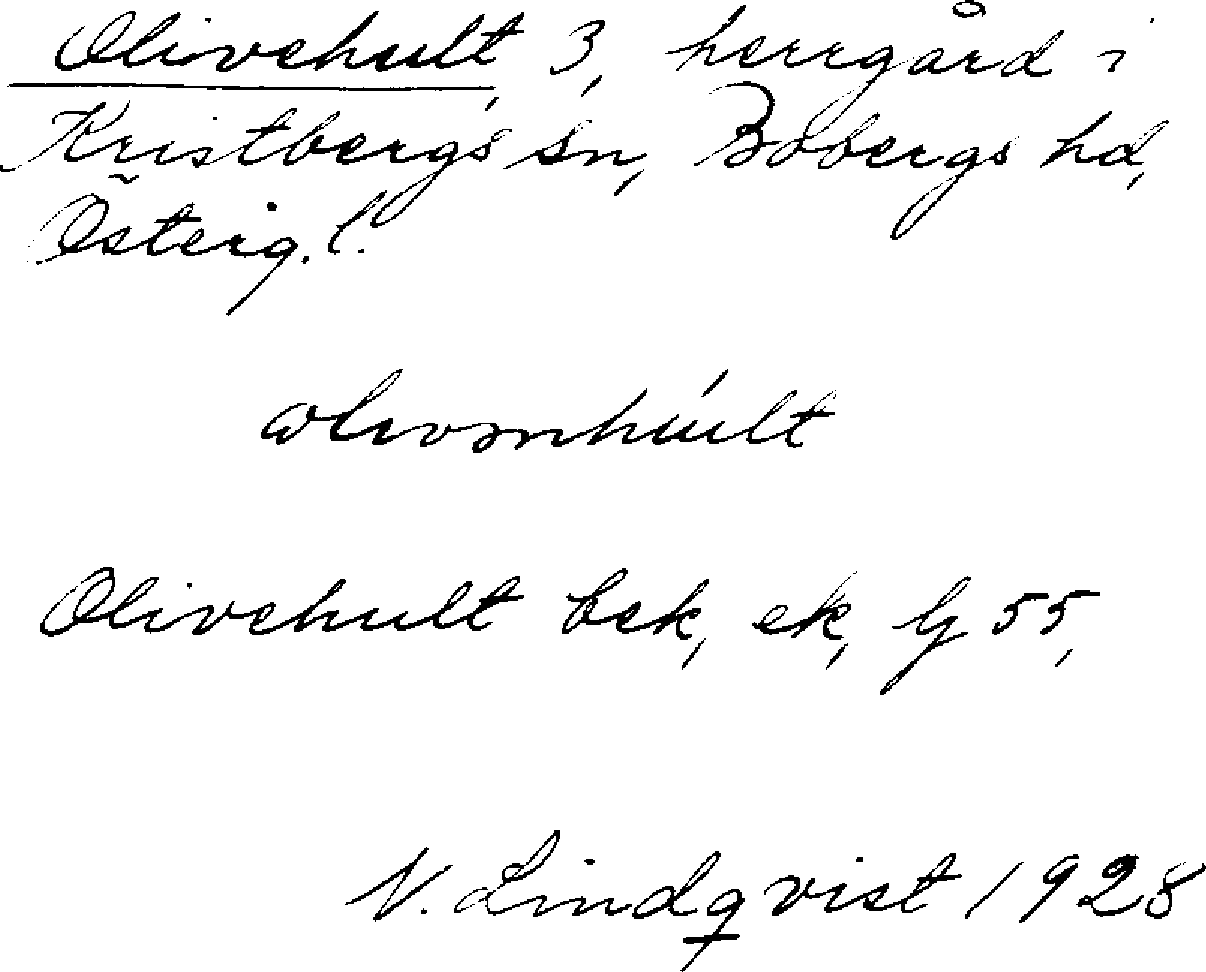 Olivehult, 3, herrgård i
Kristbergs sn, Bobergs hd,
Österg. l.
Olivehult bek, ek, Gj 55,
N. Lindqvist 1928